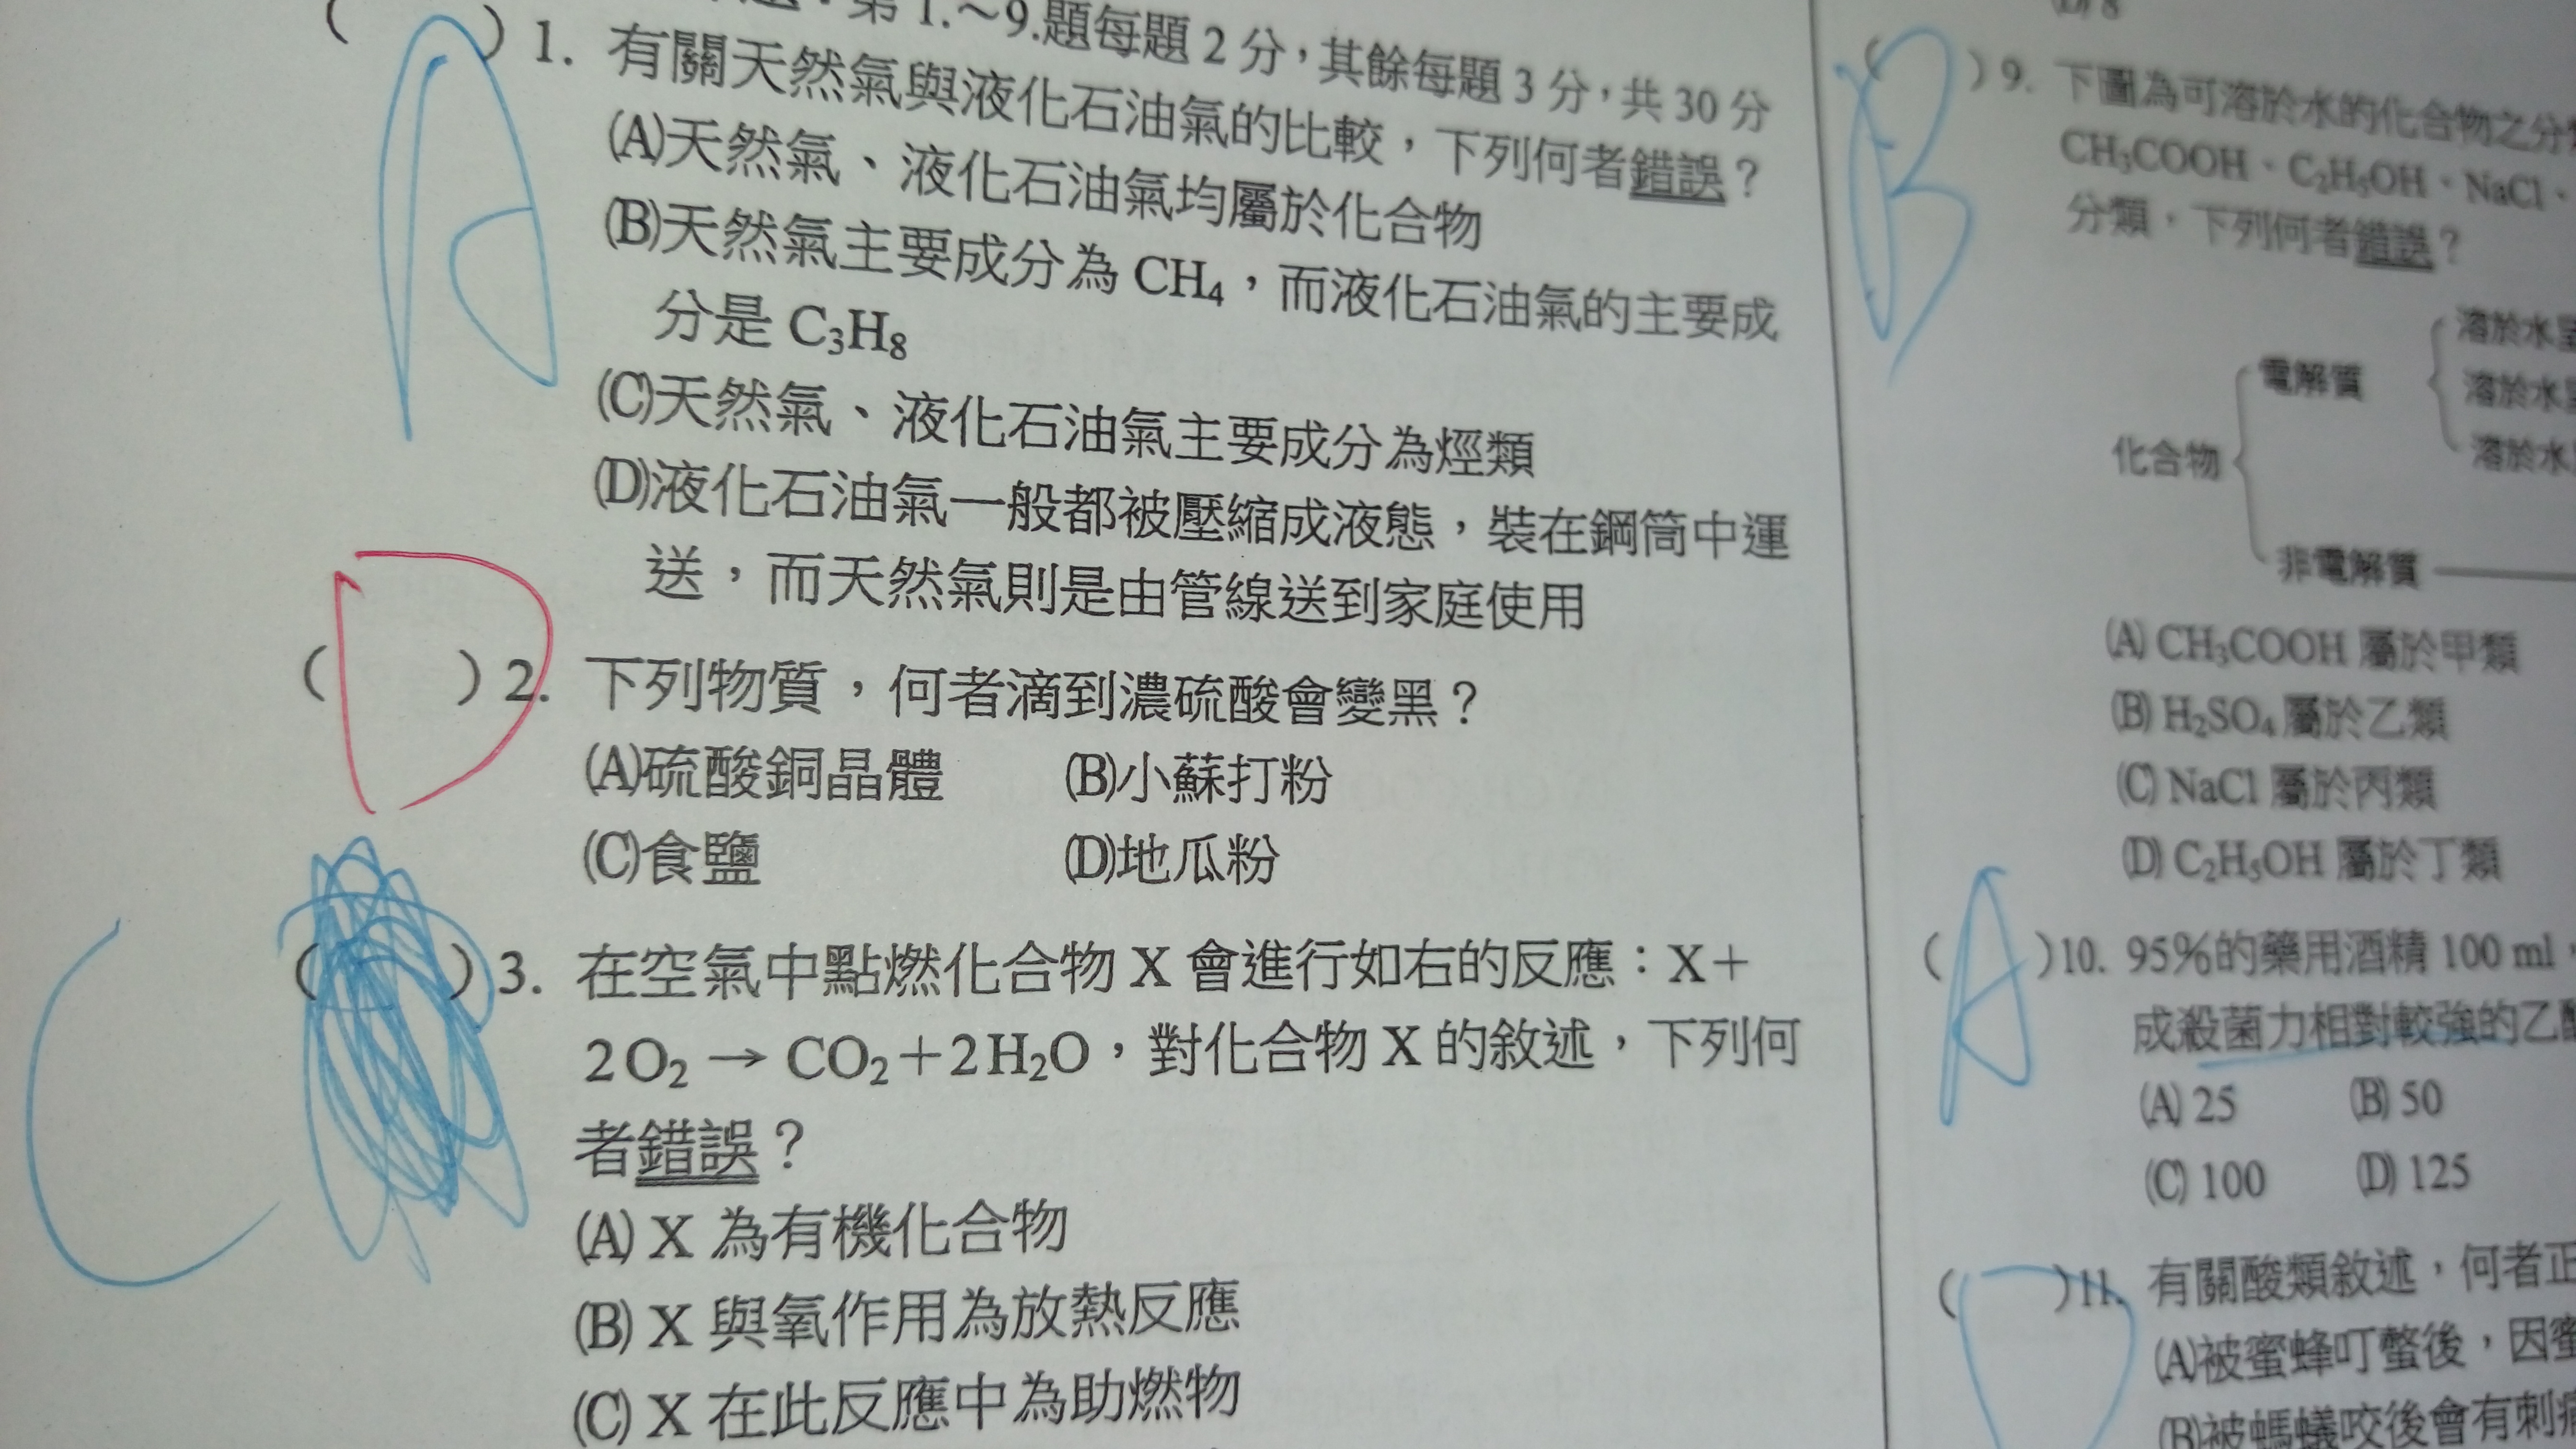 第1.～9.題每題2分，其餘每題3分，共30分
A
( )1. 有關天然氣與液化石油氣的比較，下列何者錯誤？
(A)天然氣、液化石油氣均屬於化合物
(B)天然氣主要成分為 CH₄，而液化石油氣的主要成
分是 C₃H₈
(C)天然氣、液化石油氣主要成分為烴類
(D)液化石油氣一般都被壓縮成液態，裝在鋼筒中運
送，而天然氣則是由管線送到家庭使用
D
( )2. 下列物質，何者滴到濃硫酸會變黑？
(A)硫酸銅晶體 (B)小蘇打粉
(C)食鹽 (D)地瓜粉
C
( )3. 在空氣中點燃化合物 X 會進行如右的反應：X＋
2O₂→CO₂＋2H₂O，對化合物 X 的敘述，下列何
者錯誤？
(A) X 為有機化合物
(B) X 與氧作用為放熱反應
(C) X 在此反應中為助燃物
(D) 8
B
( )9. 下圖為可溶於水的化合物之分
CH₃COOH、C₂H₅OH、NaCl、
分類，下列何者錯誤？
溶於水
電解質 溶於水
溶於水
化合物
非電解質
(A) CH₃COOH 屬於甲類
(B) H₂SO₄ 屬於乙類
(C) NaCl 屬於丙類
(D) C₂H₅OH 屬於丁類
A
( )10. 95％的藥用酒精 100 ml，
成殺菌力相對較強的乙
(A) 25 (B) 50
(C) 100 (D) 125
( )11. 有關酸類敘述，何者正
(A)被蜜蜂叮螫後，因蜜
(B)被螞蟻咬後會有刺